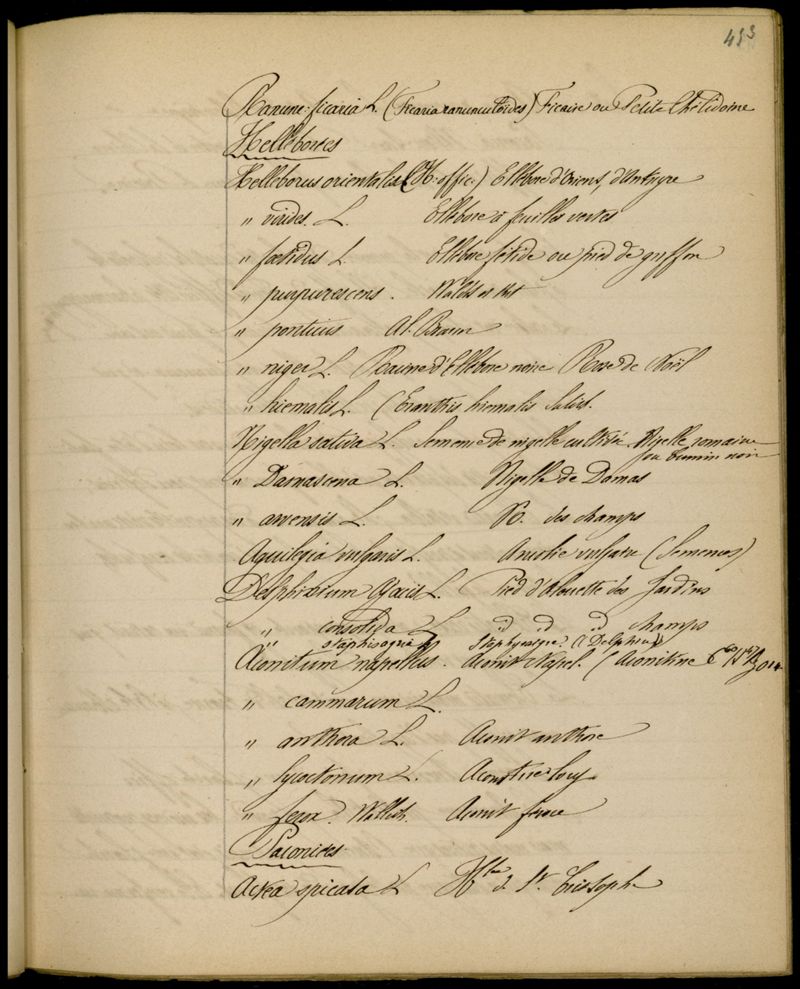 453
Ranunc: ficaria L. (Ficaria ranunculoïdes) Ficaire ou Petite Chélidoine
Hellébores
Helleborus orientalis (H. offic.) Ellébore d'Orient, d'Anticyre
" virides. L. Ellébore à feuilles vertes
" fœtidus L. Ellébore fétide ou pied de gryffon
" purpurescens. Waldst et Kit
" ponticus Al. Braun
" niger L. Racine d'Ellébore noire Rose de Noël
" hiemalis L. (Eranthis hiemalis Salisb.
Nigella sativa L. Semence de nigelle cultivée Nigelle romaine
ou Cumin noir
" Damascena L. Nigelle de Damas
" arvensis L. N. des champs
Aquilegia vulgaris L. Ancolie vulgaire (Semences)
Delphinium Ajacis L. Pied d'Alouette des Jardins
" consolida L " " " champs
" staphisagria L Staphysaigre (Delphine)
Aconitum napellus. Aconit Napel. (Aconitine
" cammarum L.
" anthora L. Aconit anthore
" lycoctonum L. Aconit tue loup
" ferox. Wallich. Aconit féroce
Paeoniées
Actea spicata L Hbe de St. Cristophe